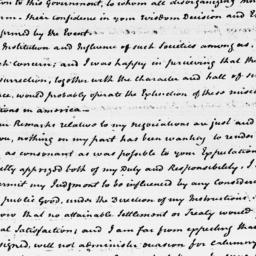 on to this Government, to whom all disorganizing
m. Their confidence in your Wisdom Decision and
firmed by the Event.
Institution and Influence of such Societies among us,
ch concern; and I was happy in perceiving that the
surrection, together with the character and fall of
ce, would probably operate the Extinction of these misc
tions in america.
our Remarks relative to my negociations are just and
you, nothing on my part has been wanting to render
as consonant as was possible to your Expectations
etly apprized both of my Duty and Responsibility. I
ermit my Judgment to be influenced by any Consider
public Good, under the Direction of my Instructions.
ow that no attainable Settlement or Treaty would
al Satisfaction; and I am far from expecting that
signed, will not administer occasion for calumny